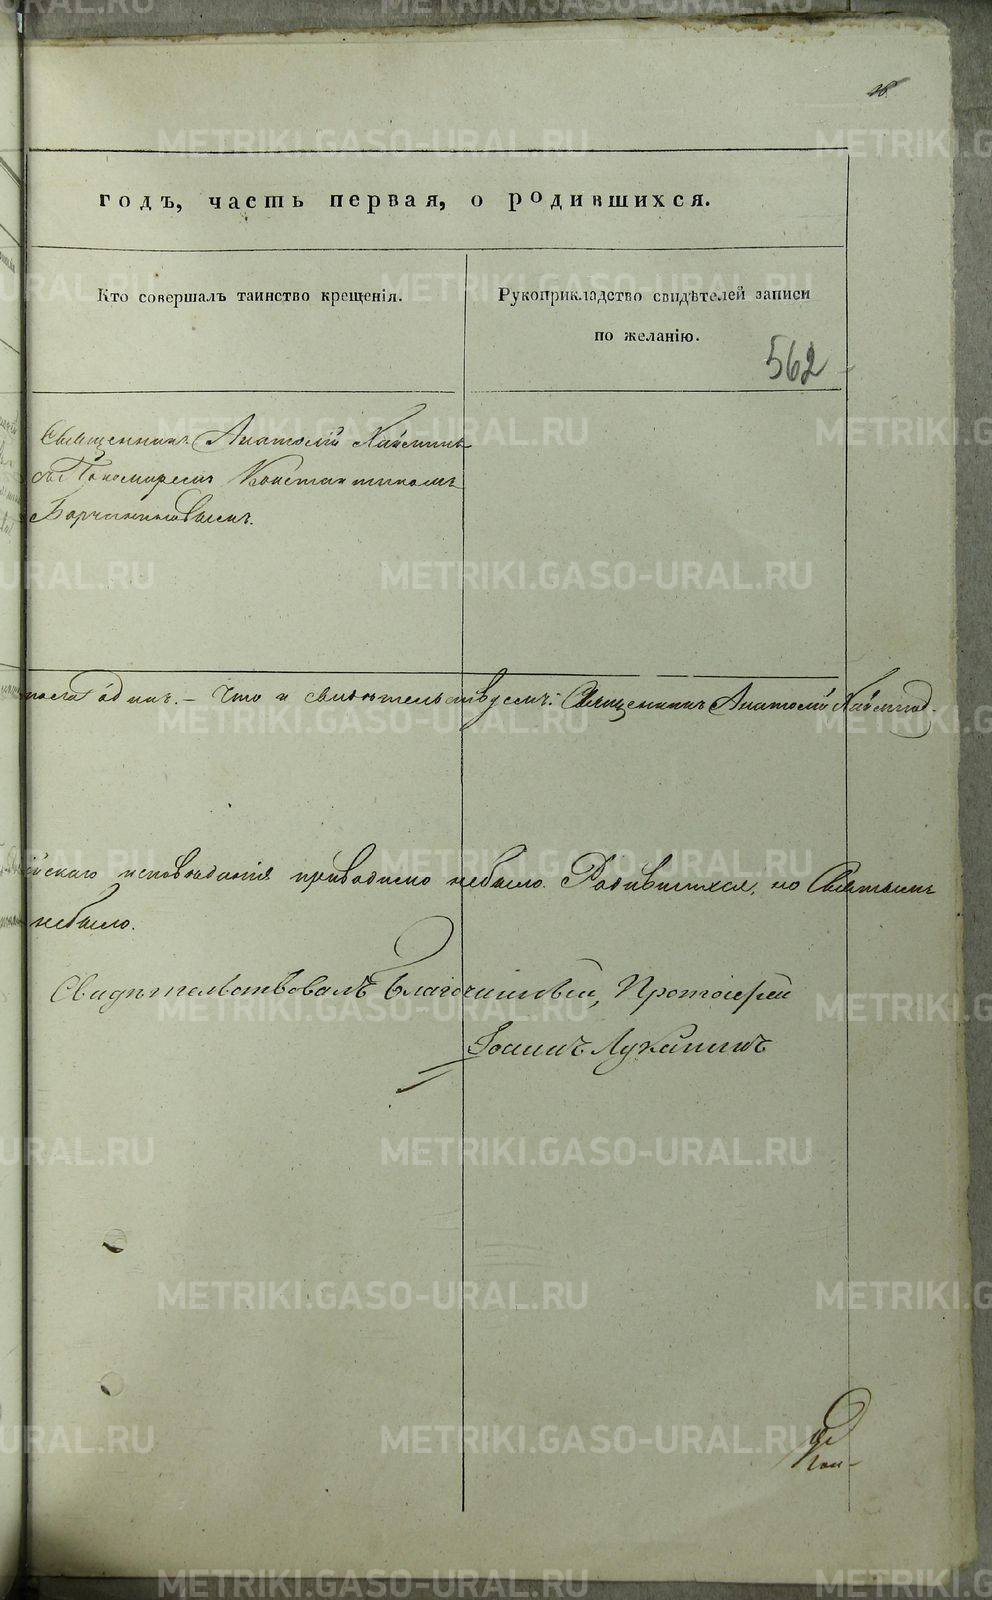 годъ, часть первая, о родившихся.
Кто совершалъ таинство крещенія.
Рукоприкладство свидѣтелей записи
по желанію.
562
Священникъ Анатолій
съ Пономаремъ Константиномъ
одинъ. – Что и свидѣтельствуемъ: Священникъ Анатолій
исповѣданія приводимо небыло. Родившихся, но
небыло.
Свидѣтельствовалъ Благочинный, Протоіерей
Іоаннъ Луканинъ
METRIKI.GASO-URAL.RU